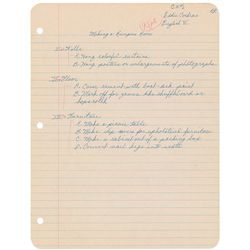 Eddie Cochran
English II
Making a Rumpus Room
I. Walls
A. Hang colorful curtains
B. Hang posters or enlargements of photographs
II. Floor
A. Cover cement with boat-deck paint
B. Mark off for games like shuffleboard or
hopscotch
III. Furniture
A. Make a picnic table
B. Make slip covers for upholstered furniture
C. Make a cabinet out of a packing box
D. Convert nail kegs into seats